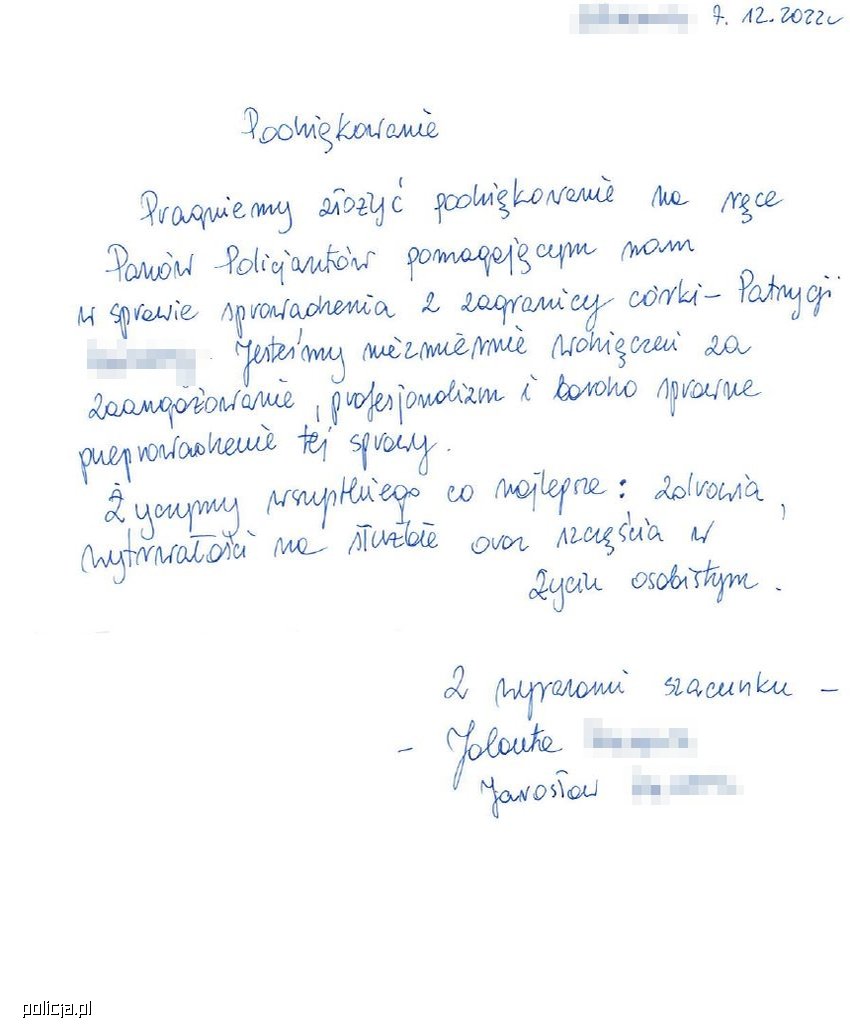 7. 12.2022r
Podziękowanie
Pragniemy złożyć podziękowanie na ręce
Panów Policjantów pomagającym nam
w sprawie sprowadzenia z zagranicy córki – Patrycji
. Jesteśmy niezmiernie wdzięczni za
zaangażowanie, profesjonalizm i bardzo sprawne
przeprowadzenie tej sprawy.
Życzymy wszystkiego co najlepsze: zdrowia,
wytrwałości na służbie oraz szczęścia w
życiu osobistym.
Z wyrazami szacunku –
– Jolanta
Jarosław
policja.pl